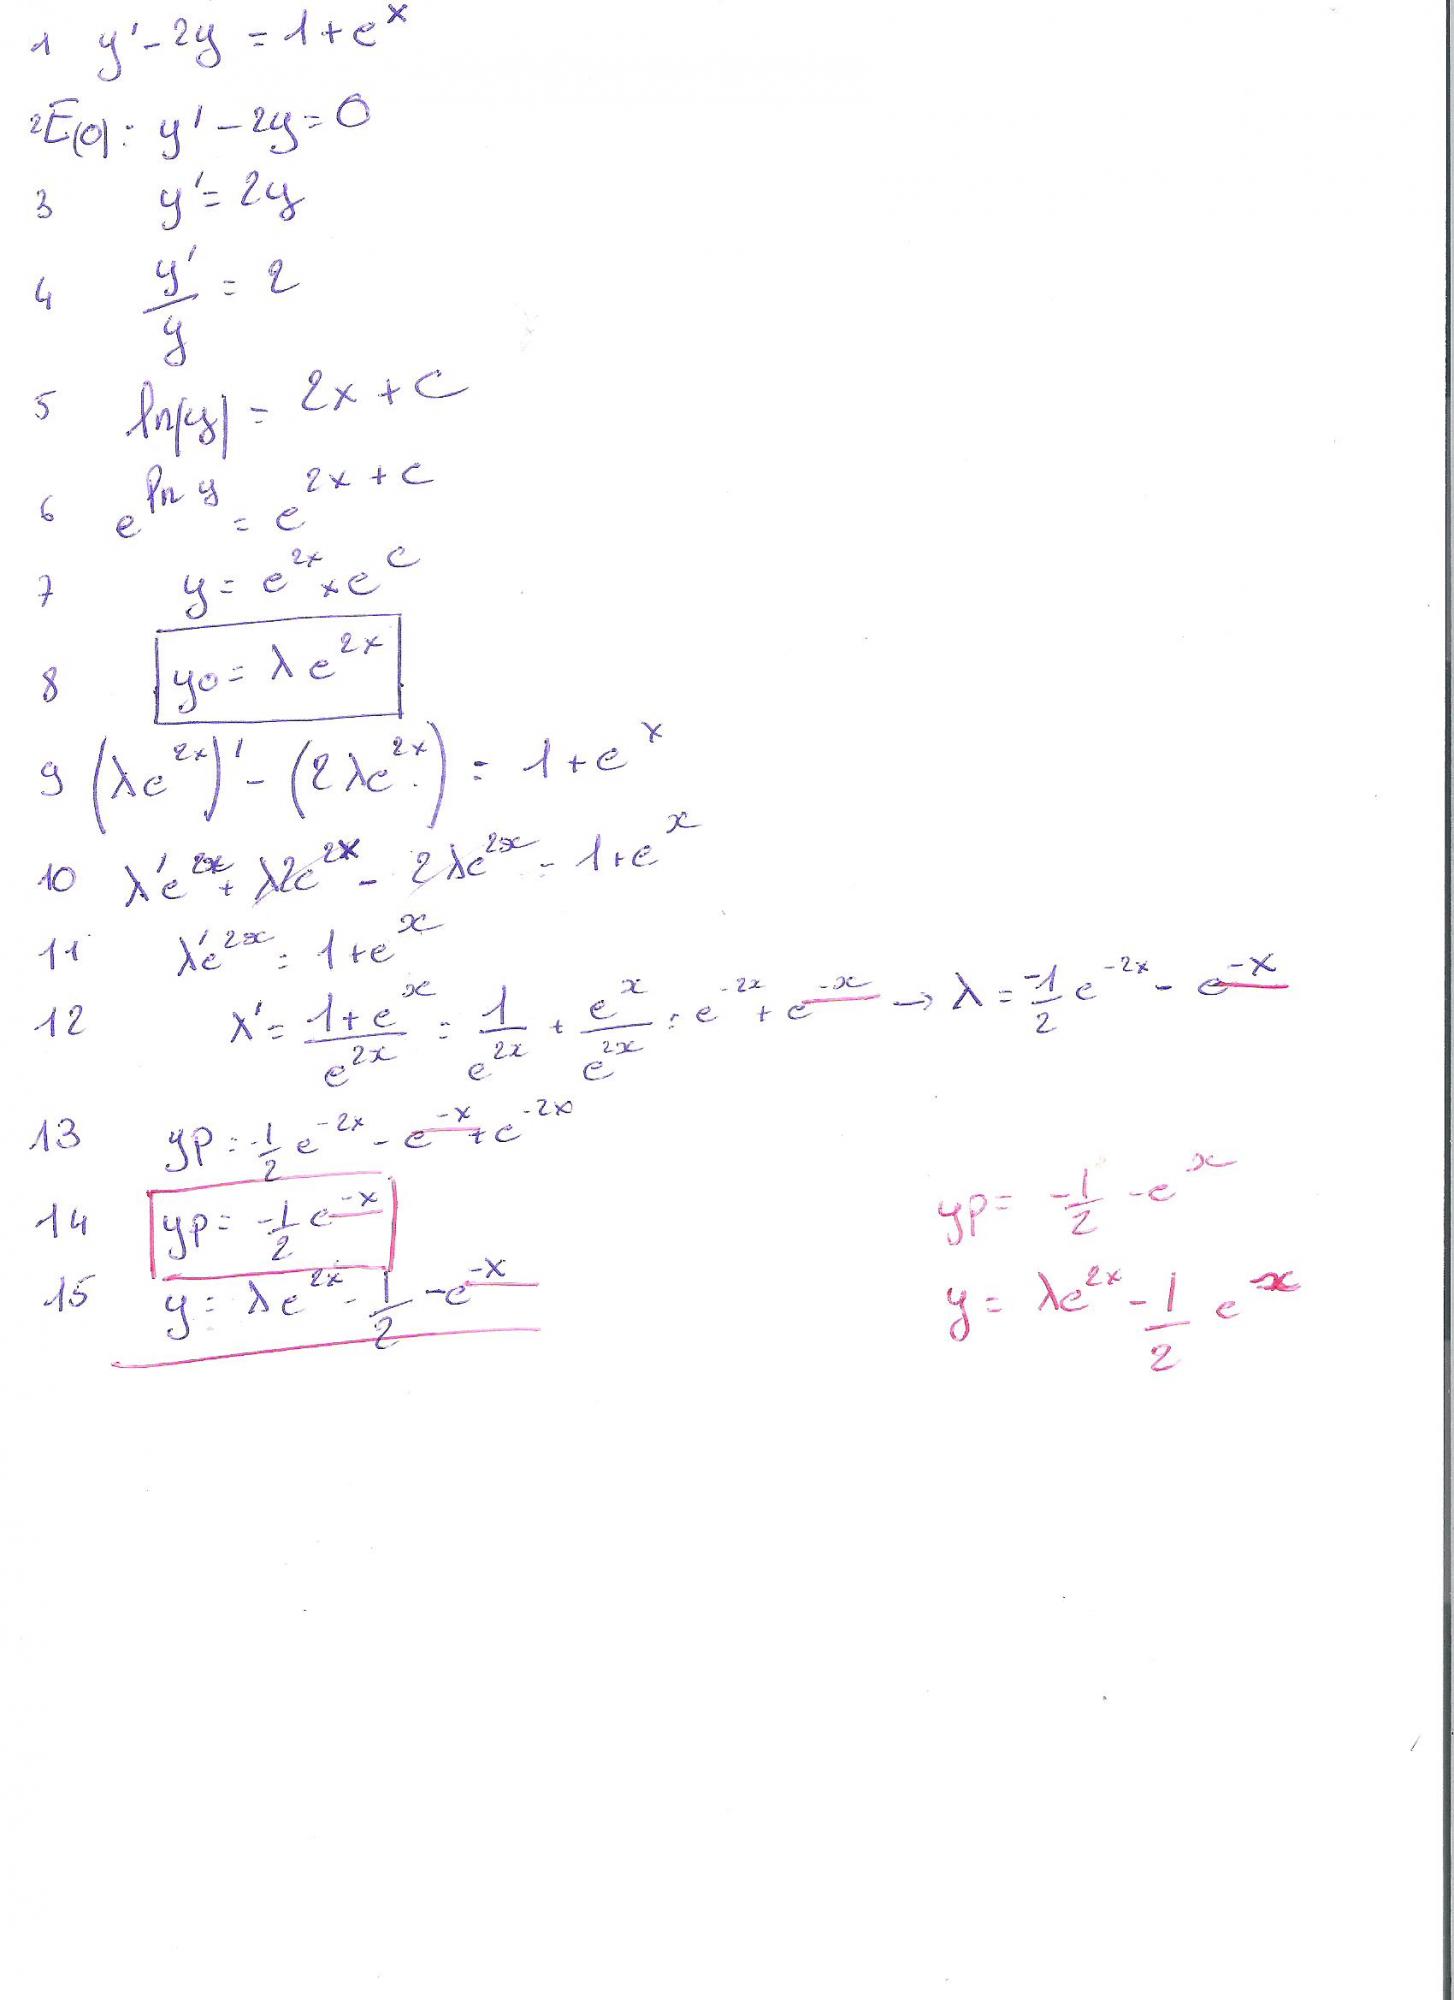 1 y' - 2y = 1 + e^x
2 E(0) : y' - 2y = 0
3 y' = 2y
4 y'/y = 2
5 ln|y| = 2x + c
6 e^(ln y) = e^(2x + c)
7 y = e^(2x) × e^c
8 y0 = λ e^(2x)
9 (λe^(2x))' - (2λe^(2x)) = 1 + e^x
10 λ'e^(2x) + λ2e^(2x) - 2λe^(2x) = 1 + e^x
11 λ'e^(2x) = 1 + e^x
12 λ' = (1 + e^x)/e^(2x) = 1/e^(2x) + e^x/e^(2x) = e^(-2x) + e^(-x) → λ = -1/2 e^(-2x) - e^(-x)
13 yp = -1/2 e^(-2x) - e^(-x) + e^(-2x)
14 yp = -1/2 e^(-x)
yp = -1/2 - e^x
15 y = λe^(2x) - 1/2 - e^(-x)
y = λe^(2x) - 1/2 e^(-x)